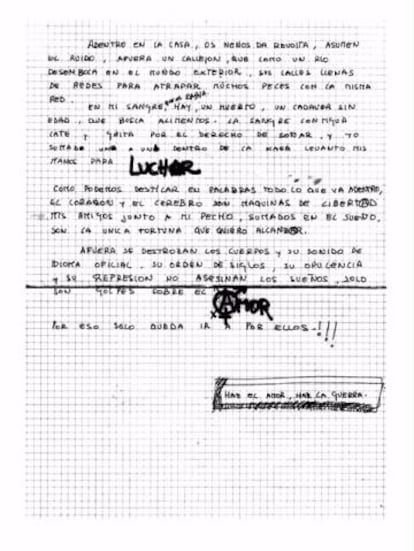 ADENTRO EN LA CASA, OS NENOS DA REVOLTA, ASUMEN
EL RUIDO, AFUERA UN CALLEJON, QUE COMO UN RIO
DESEMBOCA EN EL MUNDO EXTERIOR, SUS CALLES LLENAS
DE REDES PARA ATRAPAR MUCHOS PECES CON LA MISMA
RED.
EN MI SANGRE, HAY UN MUERTO, UN CADAVER SIN
EDAD, QUE BUSCA ALIMENTOS. LA SANGRE CONTIGUA
LATE Y GRITA POR EL DERECHO DE SOÑAR, Y YO
SUMADO UNO A UNO DENTRO DE LA MASA LEVANTO MIS
MANOS PARA LUCHAR
COMO PODEMOS DESTILAR EN PALABRAS TODO LO QUE VA ADENTRO,
EL CORAZON Y EL CEREBRO SON MAQUINAS DE LIBERTAD
MIS AMIGOS JUNTO A MI PECHO, SUMADOS EN EL SUEÑO,
SON LA UNICA FORTUNA QUE QUIERO ALCANZAR.
AFUERA SE DESTROZAN LOS CUERPOS Y SU SONIDO DE
IDIOMA OFICIAL, SU ORDEN DE SIGLOS, SU OPULENCIA
Y SU REPRESION NO ASESINAN LOS SUEÑOS, SOLO
SON GOLPES SOBRE EL AMOR
POR ESO SOLO QUEDA IR A POR ELLOS.!!!
HAZ EL AMOR, HAZ LA GUERRA.